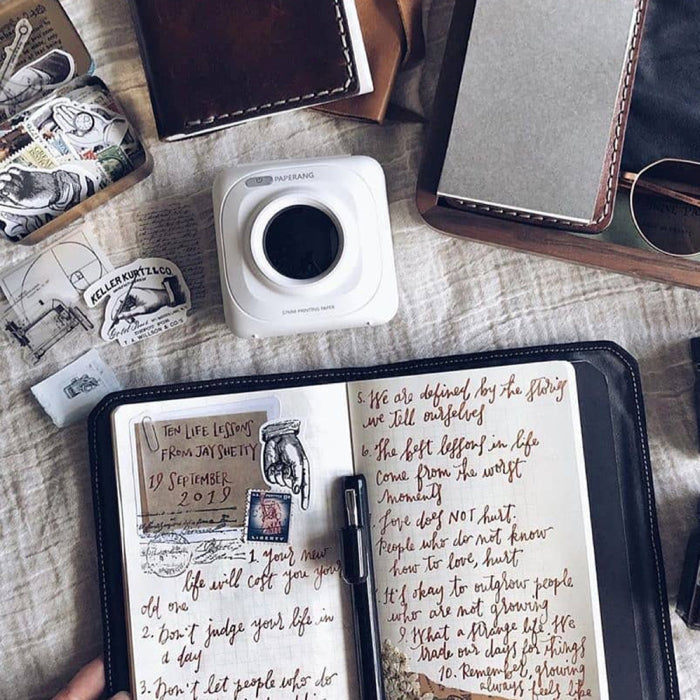 PAPERANG
57MM PRINTING PAPER
KELLER KURTZ & CO.
Gold Pens
T. A. WILLSON & CO'S
TEN LIFE LESSONS
FROM JAY SHETTY
19 SEPTEMBER
2019
U.S. POSTAGE
LIBERTY
1. Your new
life will cost you your
old one
2. Don't judge your life in
a day
3. Don't let people who do
5. We are defined by the stories
we tell ourselves
6. The best lessons in life
come from the worst
moments
7. Love does NOT hurt.
People who do not know
how to love, hurt
It's okay to outgrow people
who are not growing
9. What a strange life. We
trade our days for things
10. Remember, growing
always feels like